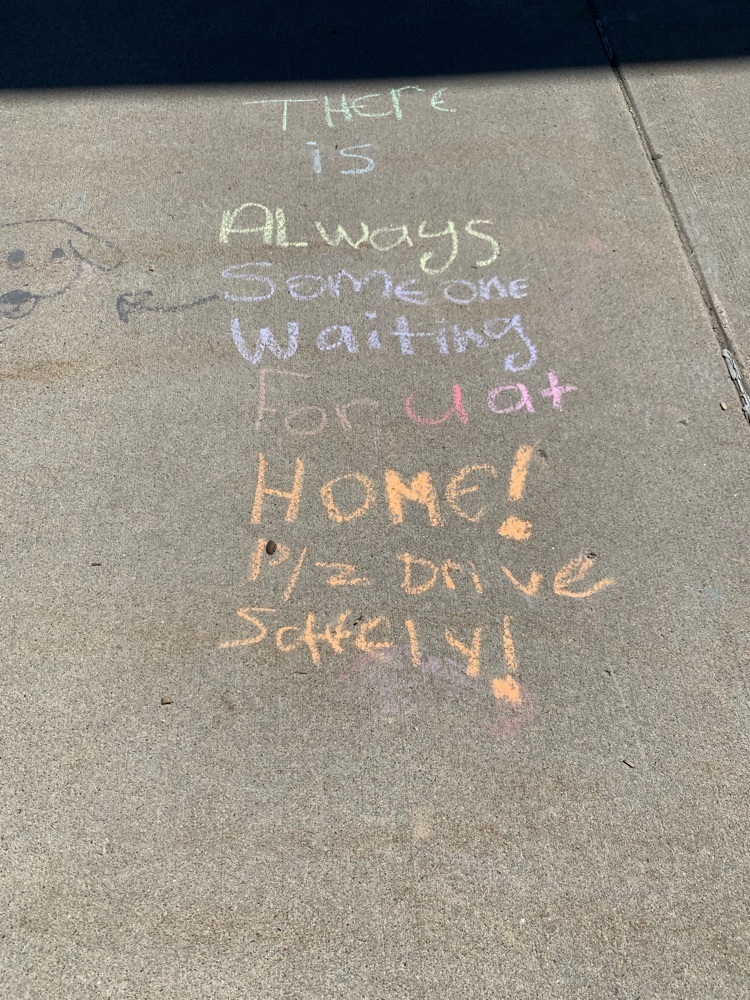 THere
is
ALways
someone
waiting
For u at
HOME!
P/z Drive
Safely!